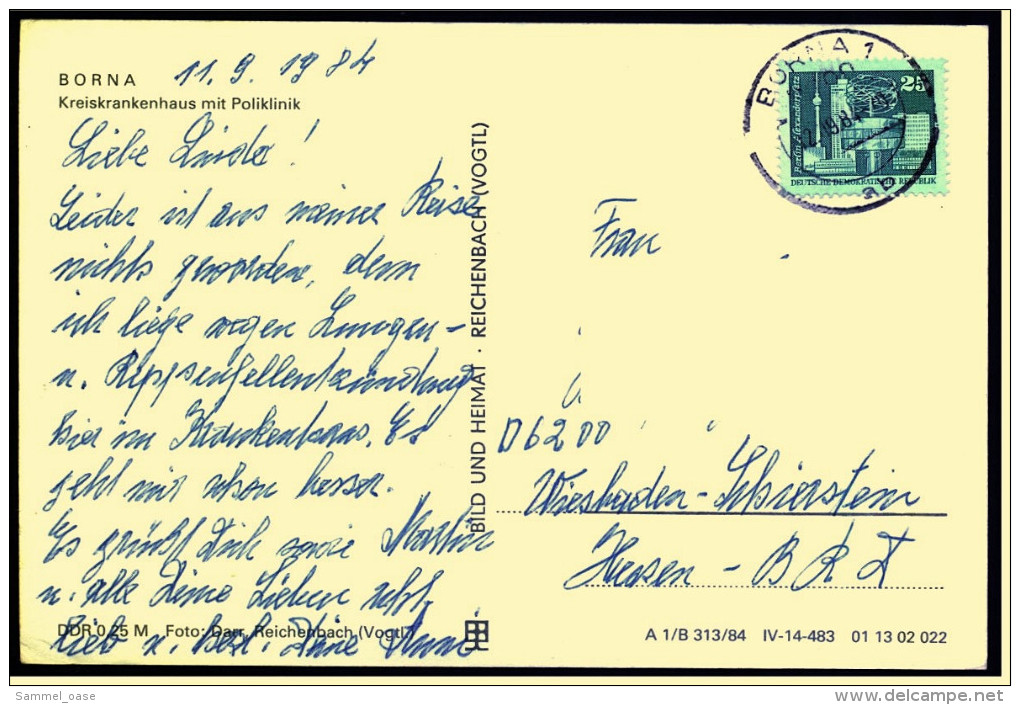 BORNA 11.9.1984
Kreiskrankenhaus mit Poliklinik
Liebe Linda!
Leider ist aus meiner Reise
nichts geworden, denn
ich liege wegen Lungen-
u. Rippenfellentzündung
hier im Krankenhaus. Es
geht mir schon besser.
Es grüßt Dich sowie Martin
u. alle Deine Lieben
lieb u. herzl. Deine
DDR 0,25 M Foto: Darr, Reichenbach (Vogtl)
BILD UND HEIMAT · REICHENBACH (VOGTL)
BORNA 1
25
Berlin-Alexanderplatz
DEUTSCHE DEMOKRATISCHE REPUBLIK
Frau
D 6200
Wiesbaden-Schierstein
Hessen - BRD
A 1/B 313/84 IV-14-483 01 13 02 022
Sammel_oase
www.delcampe.net